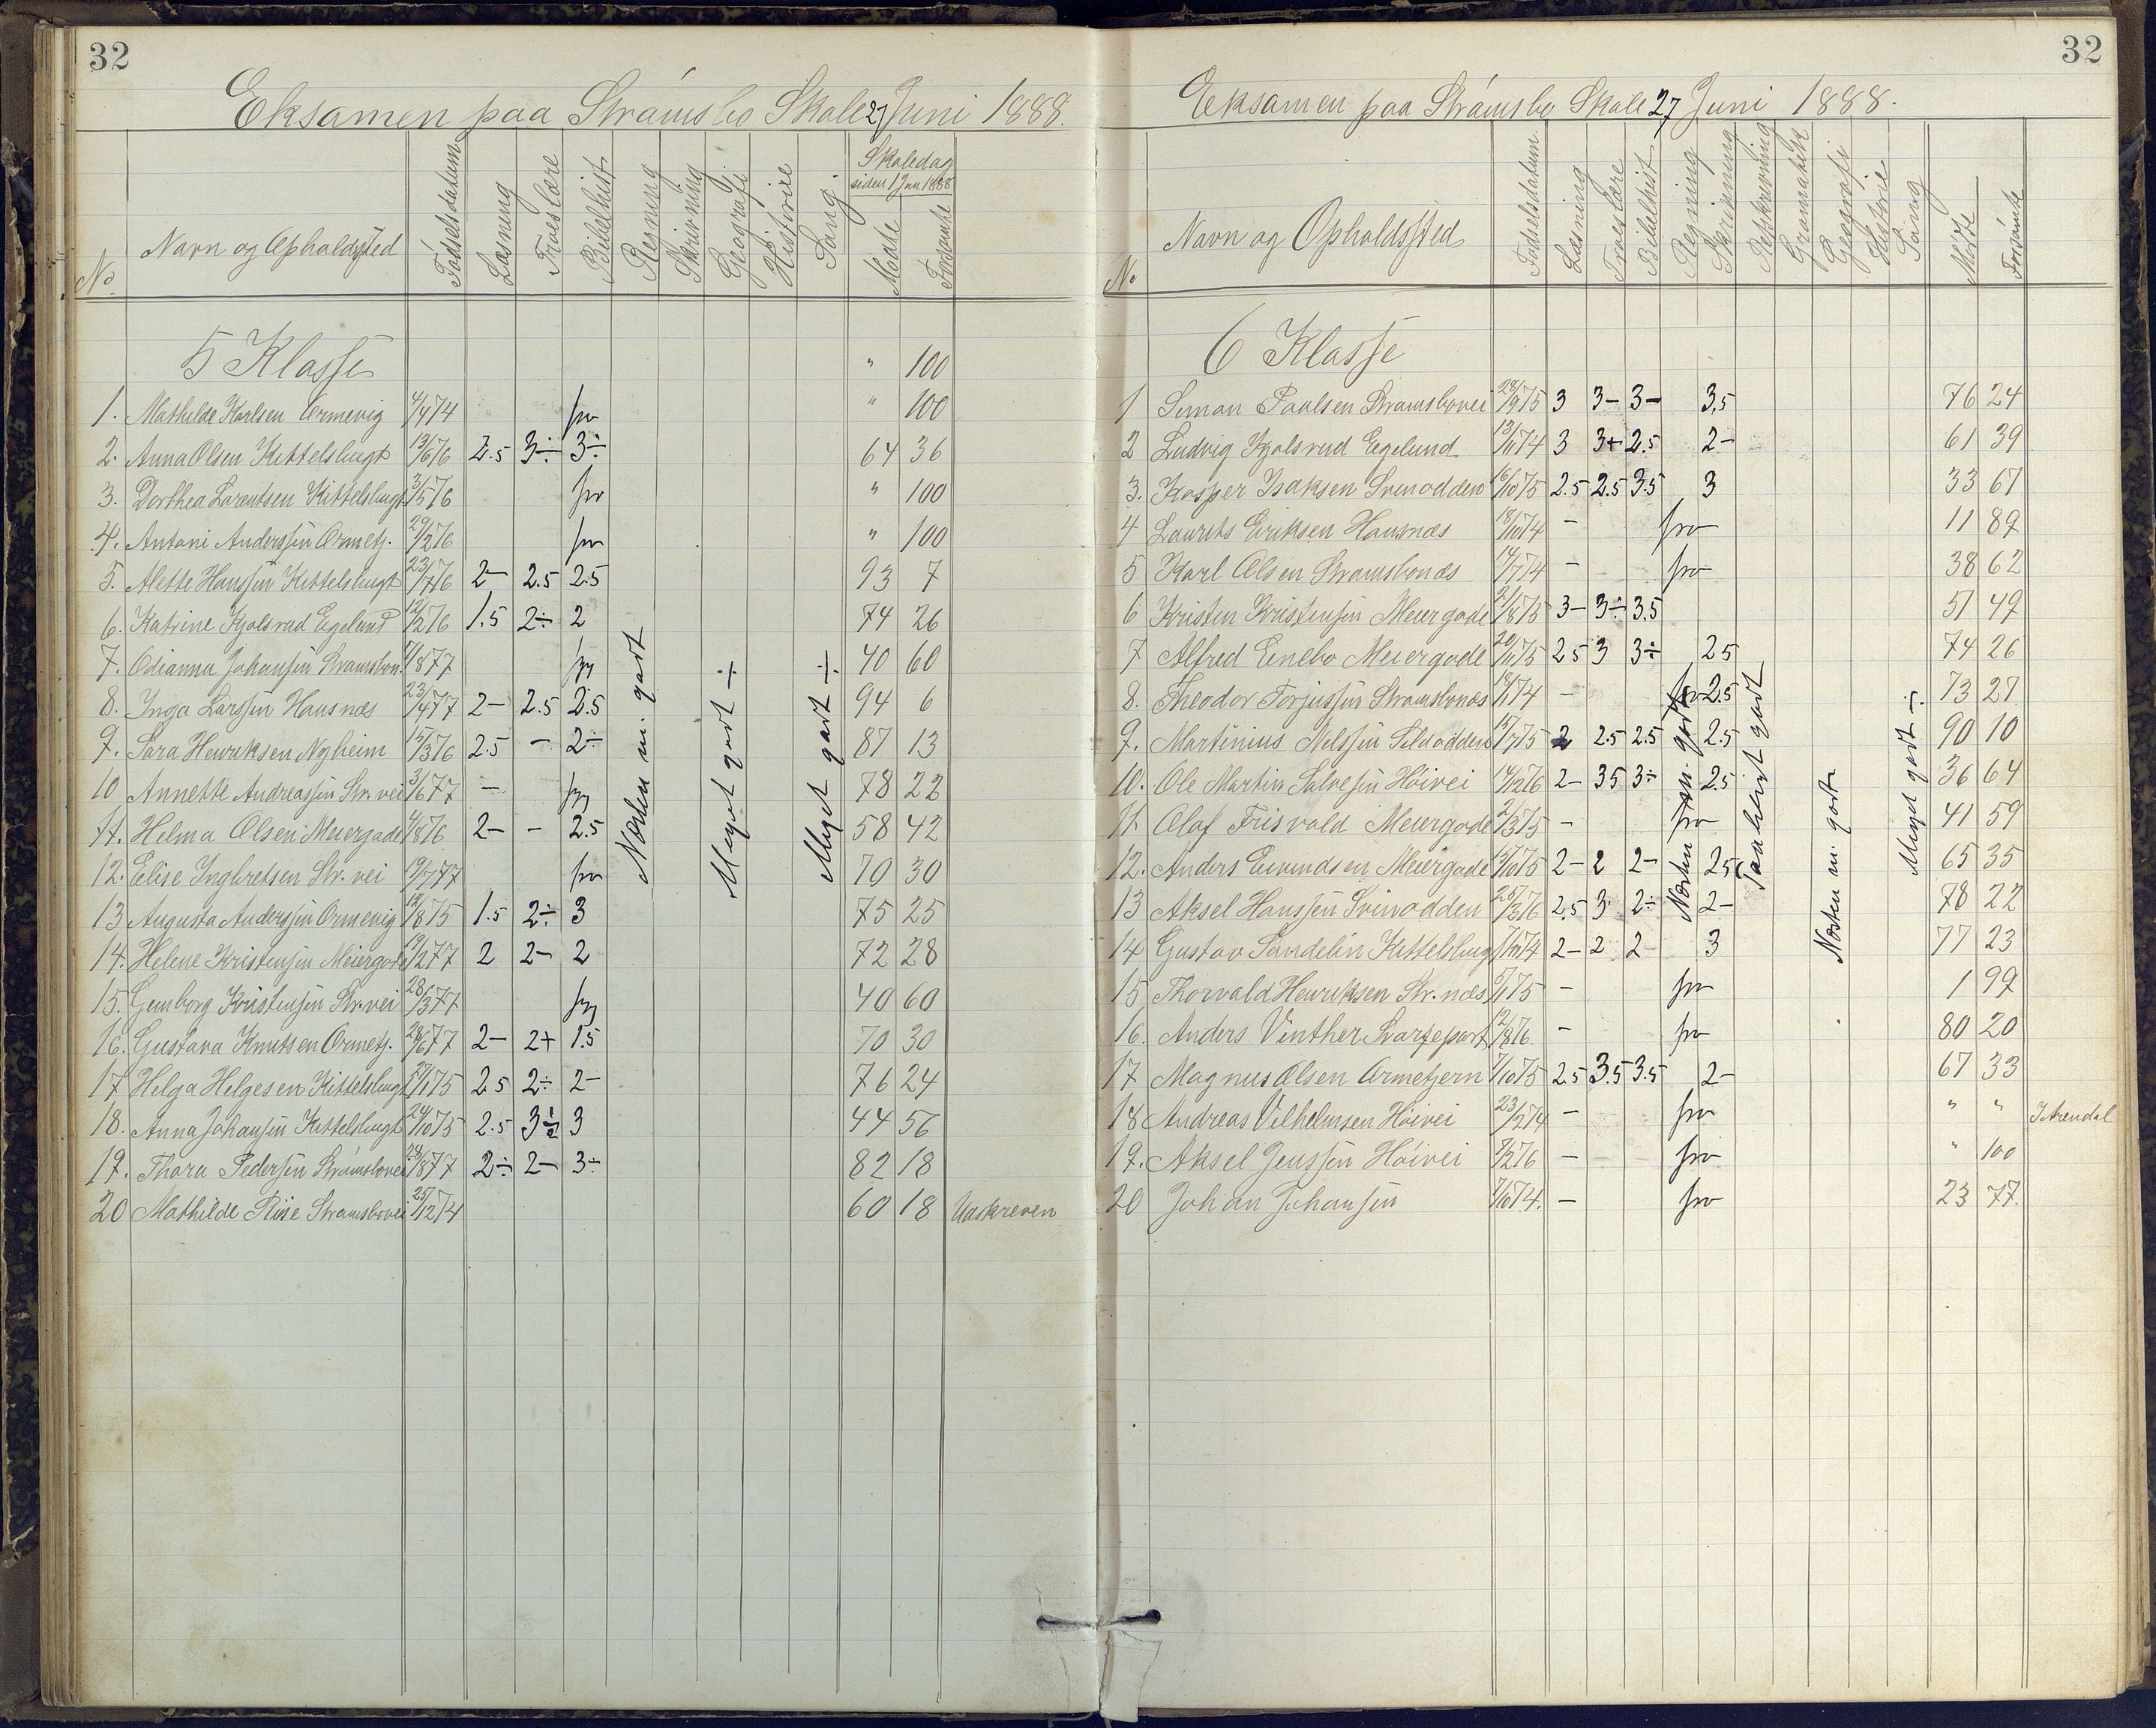 32
Eksamen paa Strømsbo Skole 27 Juni 1888.
No. Navn og Opholdssted Fødselsdatum Læsning Troeslære Bibelhist Regning Skrivning Geografi Historie Sang Skoledag siden 1 Jan 1888 Mødte Forsømte
5 Klasse " 100
1. Mathilde Karlsen Ormevig 4/4 74 frv " 100
2. Anna Olsen Kittelsbugt 13/6 76 2.5 3÷ 3÷ 64 36
3. Dorthea Larentsen Kittelsbugt 3/5 76 frv " 100
4. Antoni Anderssen Ormetj. 29/2 76 frv " 100
5. Alette Hanssen Kittelsbugt 23/7 76 2- 2.5 2.5 93 7
6. Katrine Kjolsrud Egelund 12/2 76 1.5 2÷ 2 74 26
7. Odianna Johansen Strømsbon. 7/8 77 frv 40 60
8. Inga Larssen Hausnæs 23/4 77 2- 2.5 2.5 94 6
9. Sara Henriksen Nyheim 15/3 76 2.5 - 2÷ 87 13
10 Annette Andreassen Str. vei 3/6 77 - frv 78 22
11. Helma Olsen Meiergade 4/8 76 2- - 2.5 58 42
12. Elise Ingbretsen Str. vei 19/7 77 frv 70 30
13 Augusta Anderssen Ormevig 19/8 75 1.5 2÷ 3 75 25
14. Helene Kristensen Meiergade 19/2 77 2 2- 2 72 28
15. Gunborg Kristensen Str. vei 28/3 77 frv 40 60
16. Gustava Knutsen Ormetj. 28/6 77 2- 2+ 1.5 70 30
17 Helga Helgesen Kittelsbugt 27/1 75 2.5 2÷ 2- 76 24
18. Anna Johansen Kittelsbugt 24/10 75 2.5 3÷ 3 44 56
19. Thora Pedersen Strømsbovei 29/8 77 2÷ 2- 3÷ 82 18
20 Mathilde Riise Strømsbovei 25/12 74 60 18 Udskreven
Næsten m. godt
Meget godt ÷
Meget godt ÷
32
Eksamen paa Strømsbo Skole 27 Juni 1888.
No Navn og Opholdssted Fødselsdatum Læsning Troeslære Bibelhist Regning Skrivning Retskrivning Gramatikk Geografi Historie Sang Mødte Forsømte
6 Klasse
1 Simon Paulsen Strømsbovei 28/9 75 3 3- 3- 3,5 76 24
2 Ludvig Kjolsrud Egelund 13/11 74 3 3+ 2.5 2- 61 39
3. Kasper Isaksen Svinodden 6/10 75 2.5 2.5 3.5 3 33 67
4 Laurits Eriksen Hausnæs 18/10 74 - frv 11 89
5 Karl Olsen Strømsbonæs 14/7 74 - frv 38 62
6 Kristen Kristensen Meiergade 21/8 75 3- 3÷ 3.5 51 49
7 Alfred Enebo Meiergade 20/11 75 2.5 3 3÷ 2.5 74 26
8. Theodor Torjussen Strømsbonæs 18/1 74 - frv 2.5 73 27
9. Martinius Nilssen Sildodden 17/7 75 2 2.5 2.5 2.5 90 10
10. Ole Martin Salvesen Høivei 14/12 76 2- 3.5 3÷ 2.5 36 64
11 Olaf Frisvold Meiergade 2/3 75 - frv 41 59
12. Anders Eivindsen Meiergade 14/10 75 2- 2 2- 2.5 65 35
13 Aksel Hanssen Svinodden 25/3 76 2.5 3 2÷ 2- 78 22
14 Gustav Sandelin Kittelsbugt 7/10 74 2- 2 2- 3 77 23
15 Thorvald Henriksen Str. næs 5/1 75 - frv 1 99
16. Anders Vinther Svartepart 12/8 76 - frv 80 20
17 Magnus Olsen Ormetjern 7/10 75 2.5 3.5 3.5 2- 67 33
18 Andreas Vilhelmsen Høivei 23/12 74 - frv " " I Arendal
19. Aksel Jenssen Høivei 8/2 76 - frv " 100
20 Johan Johansen 7/10 74. - frv 23 77.
Næsten m. godt
Taaleligt godt
Næsten m. godt
Meget godt ÷